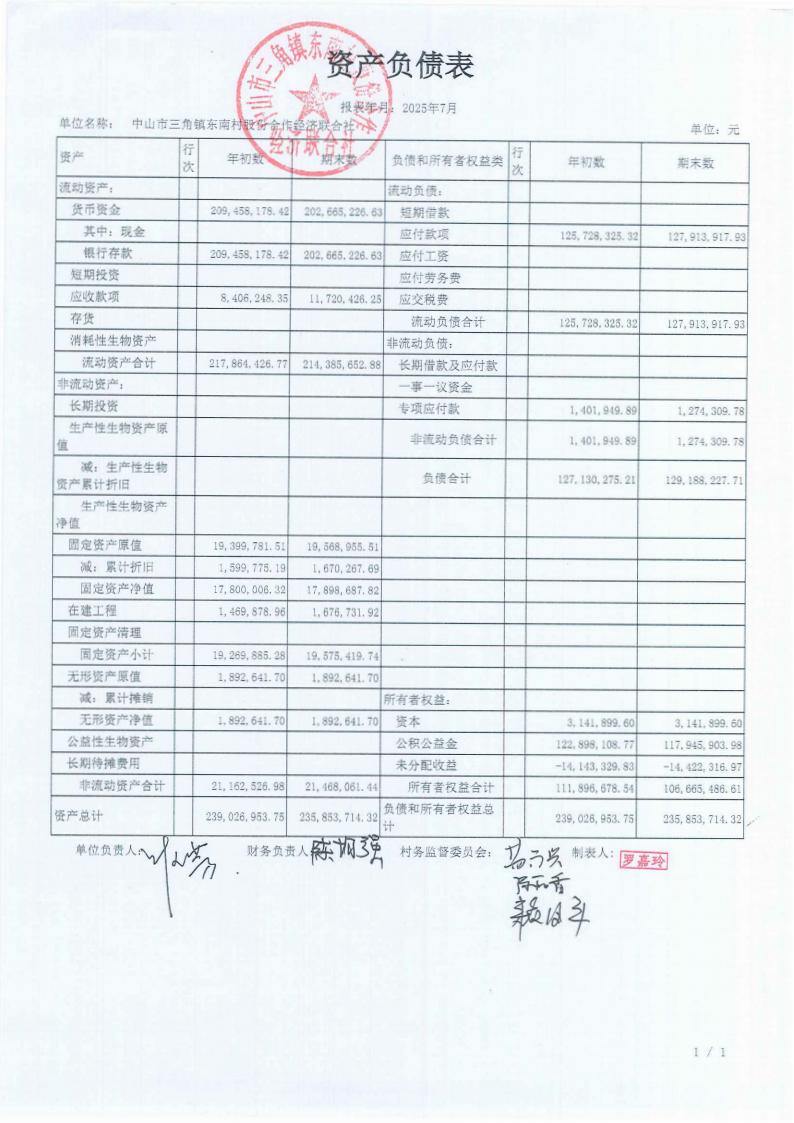 资产负债表
报表年月：2025年7月
单位名称： 中山市三角镇东南村股份合作经济联合社
单位：元
资产 行次 年初数 期末数 负债和所有者权益类 行次 年初数 期末数
流动资产： 流动负债：
货币资金 209,458,178.42 202,665,226.63 短期借款
其中：现金 应付款项 125,728,325.32 127,913,917.93
银行存款 209,458,178.42 202,665,226.63 应付工资
短期投资 应付劳务费
应收款项 8,406,248.35 11,720,426.25 应交税费
存货 流动负债合计 125,728,325.32 127,913,917.93
消耗性生物资产 非流动负债：
流动资产合计 217,864,426.77 214,385,652.88 长期借款及应付款
非流动资产： 一事一议资金
长期投资 专项应付款 1,401,949.89 1,274,309.78
生产性生物资产原值 非流动负债合计 1,401,949.89 1,274,309.78
减：生产性生物资产累计折旧 负债合计 127,130,275.21 129,188,227.71
生产性生物资产净值
固定资产原值 19,399,781.51 19,568,955.51
减：累计折旧 1,599,775.19 1,670,267.69
固定资产净值 17,800,006.32 17,898,687.82
在建工程 1,469,878.96 1,676,731.92
固定资产清理
固定资产小计 19,269,885.28 19,575,419.74
无形资产原值 1,892,641.70 1,892,641.70
减：累计摊销 所有者权益：
无形资产净值 1,892,641.70 1,892,641.70 资本 3,141,899.60 3,141,899.60
公益性生物资产 公积公益金 122,898,108.77 117,945,903.98
长期待摊费用 未分配收益 -14,143,329.83 -14,422,316.97
非流动资产合计 21,162,526.98 21,468,061.44 所有者权益合计 111,896,678.54 106,665,486.61
资产总计 239,026,953.75 235,853,714.32 负债和所有者权益总计 239,026,953.75 235,853,714.32
单位负责人： 财务负责人 村务监督委员会： 制表人： 罗嘉玲
1 / 1